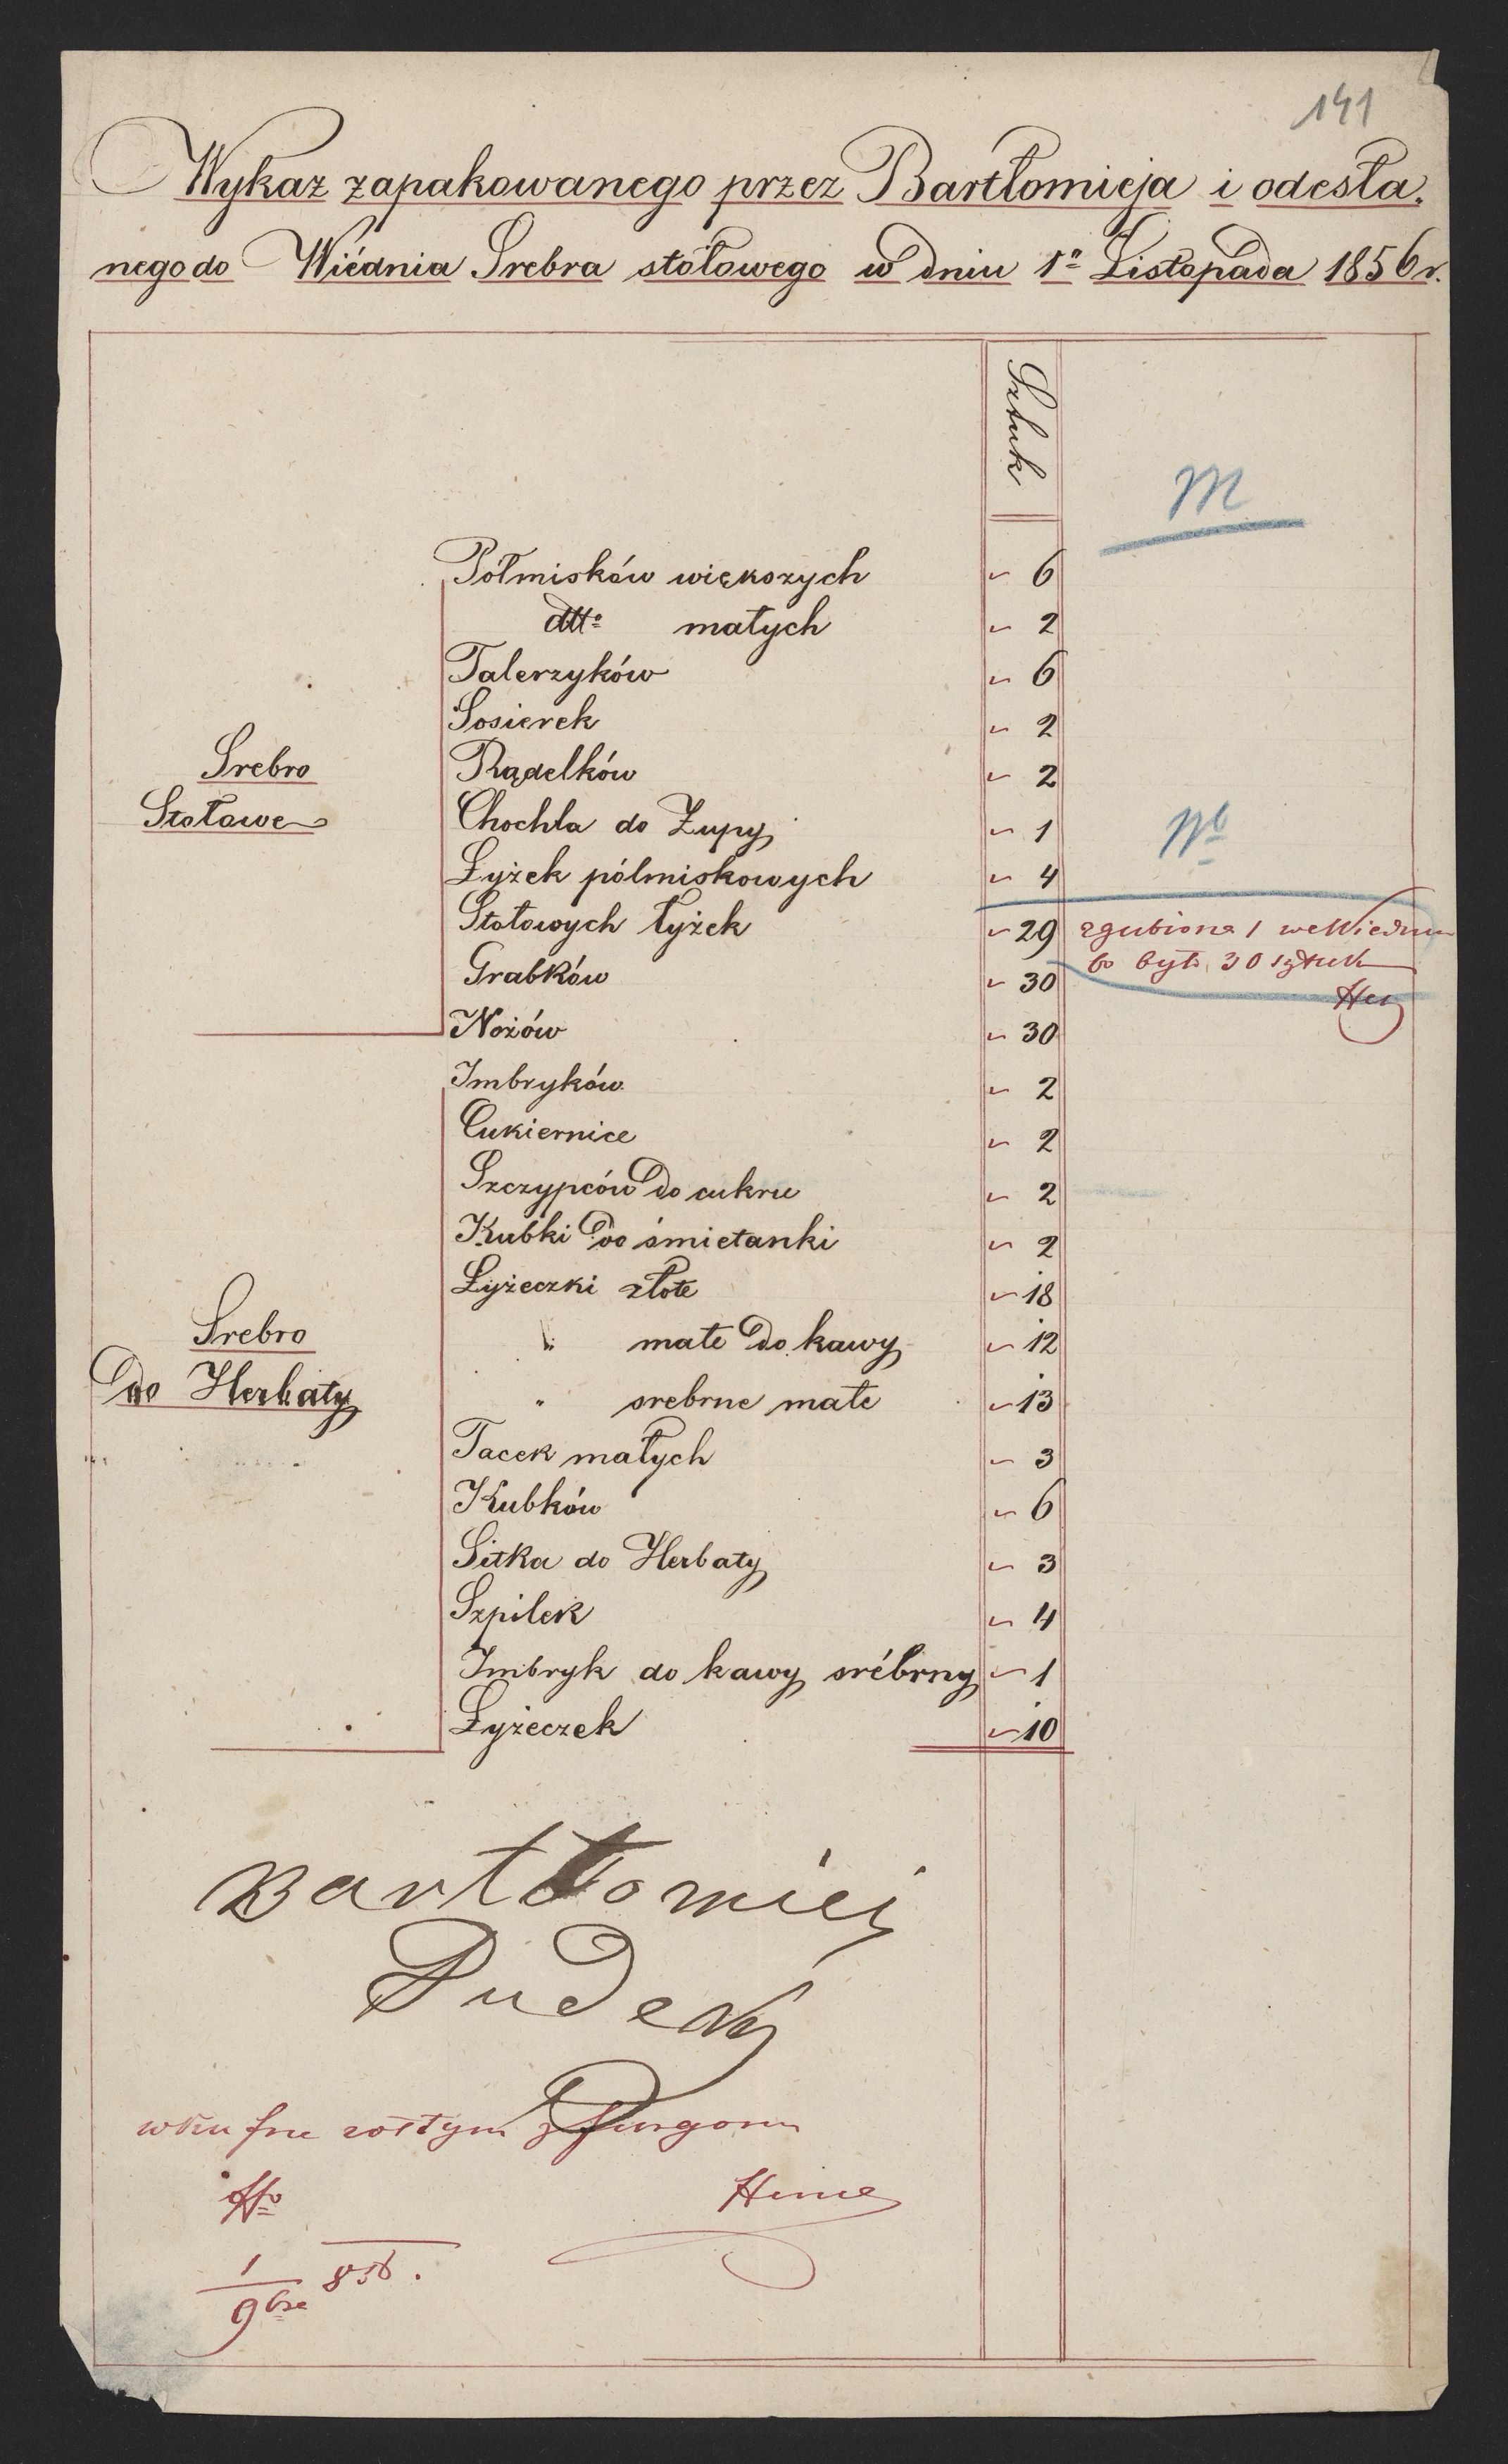 141
Wykaz zapakowanego przez Bartłomieja i odesła.
nego do Wiédnia Srebra stołowego w dniu 1º Listopada 1856 r.
Sztuk
M
Półmisków większych 6
dtto małych 2
Talerzyków 6
Sosierek 2
Srebro
Stołowe
Rądelków 2
Chochla do Zupy 1
Nb
Łyżek pólmiskowych 4
Stołowych łyżek 29 zgubiona 1 we Wiedniu
bo było 30 sztuk
Grabków 30
Nożów 30
Imbryków 2
Cukiernice 2
Szczypców do cukru 2
Kubki do śmietanki 2
Łyżeczki złote 18
Srebro
do Herbaty
" małe do kawy 12
" srebrne małe 13
Tacek małych 3
Kubków 6
Sitka do Herbaty 3
Szpilek 4
Imbryk do kawy srébrny 1
Łyżeczek 10
Bartłomiej
żółtym furgonu
1
9bra 856.